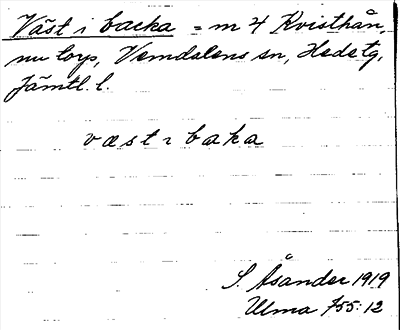 Väst i backa = m 4 Kvisthån,
nu torp, Vemdalens sn, Hede tg,
Jämtl. l.
væst ɪ baka
S. Åsander 1919
Ulma 755:12